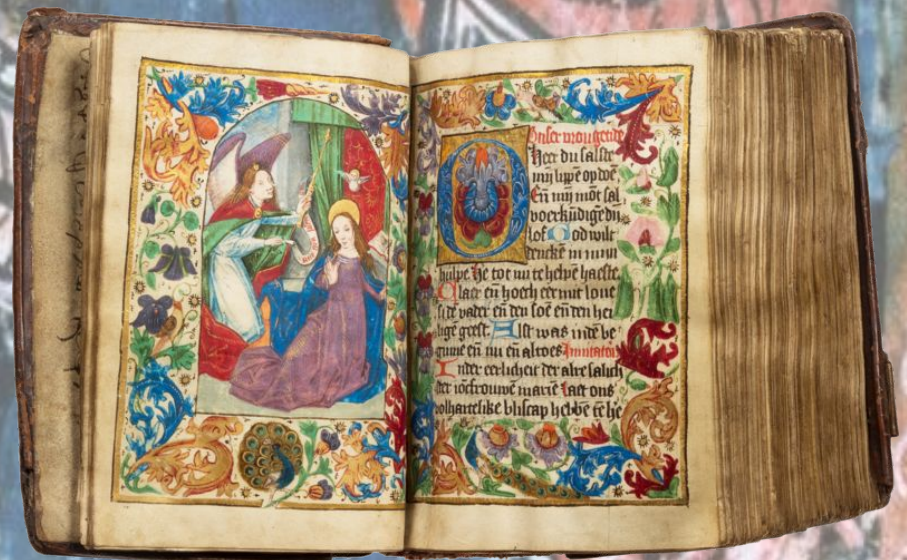 Heer du salste
mijn lippē opdoē
Eñ mijn mōt sal
voerkūdigē dijn
lof God wilt
dencken in mijn
hulpe. He toe mi te helpē haeste.
Glaer eñ hoech eer mit loue
si dē vader eñ den soē eñ den hei
ligē geest. Alst was indē be
ginne eñ nu eñ altoes Inuitatoriū
Inder eerlicheit der alre salich
ster iōcfrouwē marië Laet ons
volhartelike bliscap hebbē te he